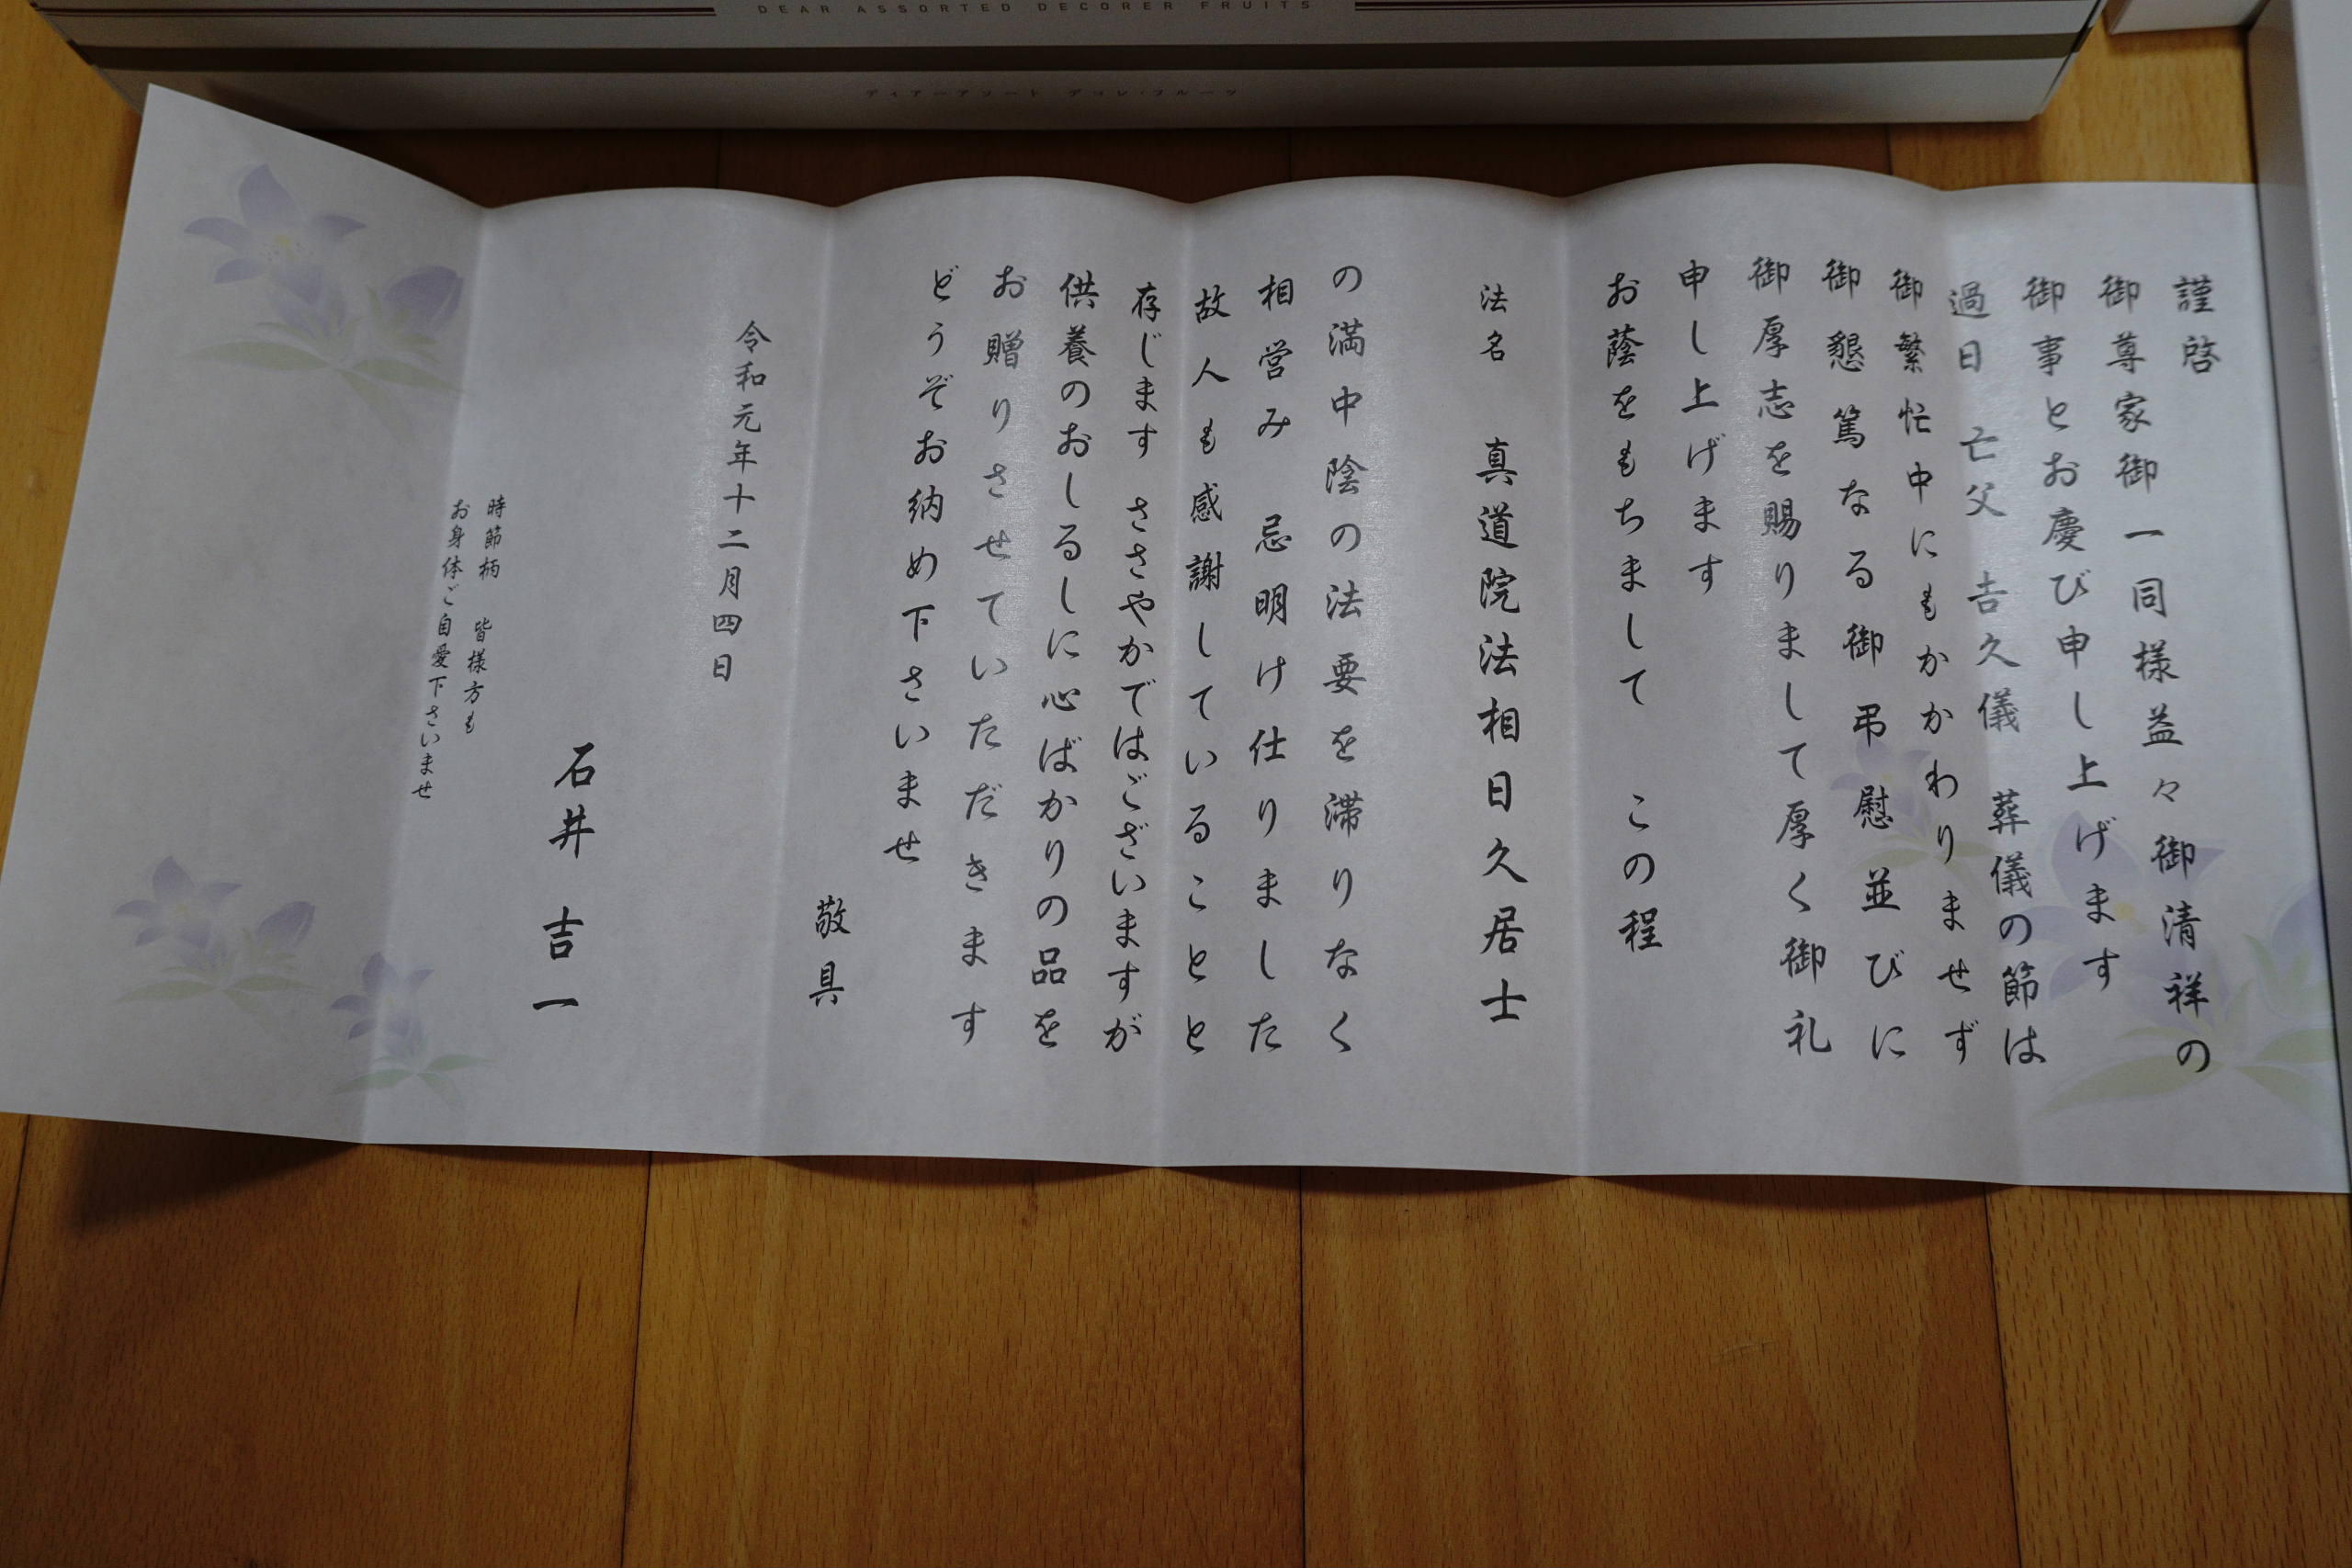 DEAR ASSORTED DECORER FRUITS
ディアーアソート デコレ・フルーツ
謹啓
御尊家御一同様益々御清祥の
御事とお慶び申し上げます
過日 亡父 吉久儀 葬儀の節は
御繁忙中にもかかわりませず
御懇篤なる御弔慰並びに
御厚志を賜りまして厚く御礼
申し上げます
お蔭をもちまして この程
法名 真道院法相日久居士
の満中陰の法要を滞りなく
相営み 忌明け仕りました
故人も感謝していることと
存じます ささやかではございますが
供養のおしるしに心ばかりの品を
お贈りさせていただきます
どうぞお納め下さいませ
敬具
令和元年十二月四日
石井 吉一
時節柄 皆様方も
お身体ご自愛下さいませ